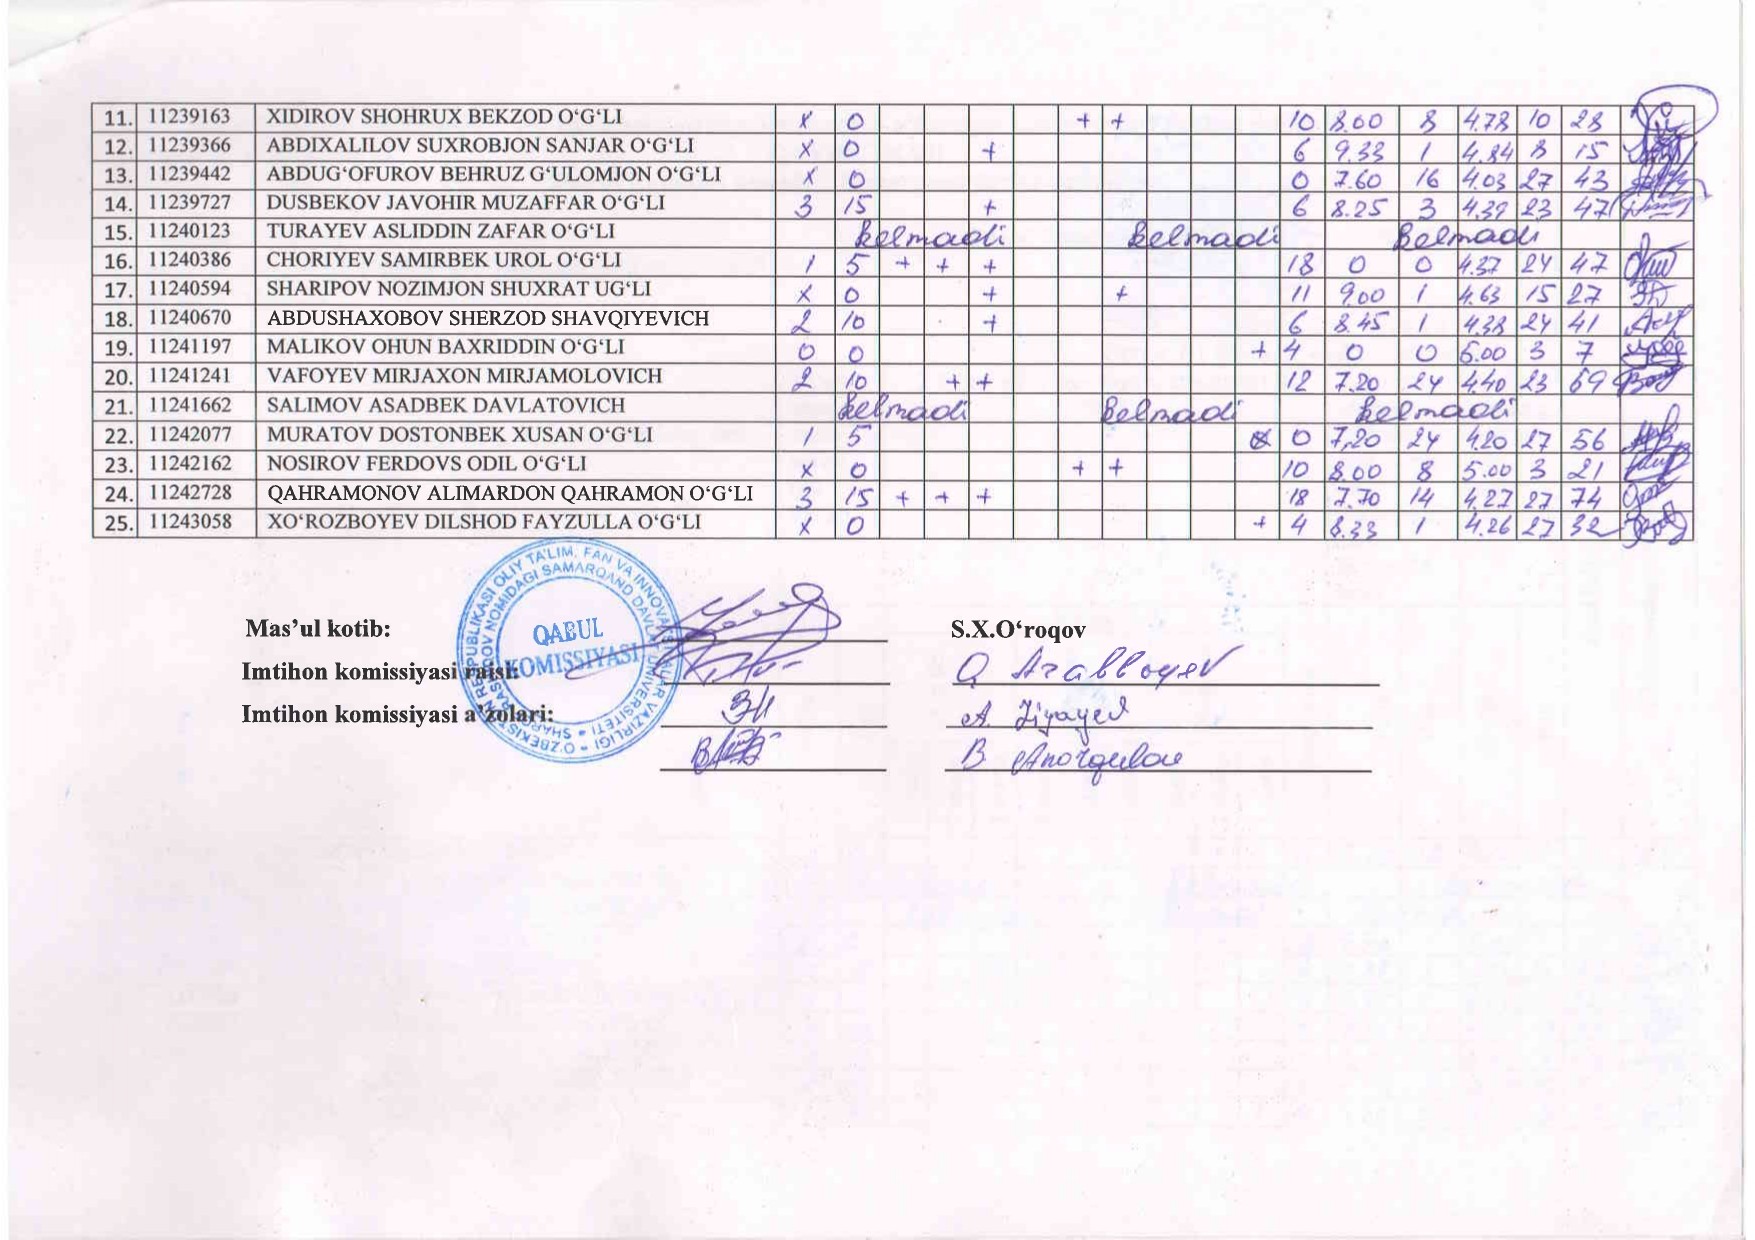 11. 11239163 XIDIROV SHOHRUX BEKZOD O‘G‘LI x 0 + + 10 8.00 8 4.78 10 28
12. 11239366 ABDIXALILOV SUXROBJON SANJAR O‘G‘LI x 0 + 6 9.33 1 4.84 8 15
13. 11239442 ABDUG‘OFUROV BEHRUZ G‘ULOMJON O‘G‘LI x 0 0 7.60 16 4.03 27 43
14. 11239727 DUSBEKOV JAVOHIR MUZAFFAR O‘G‘LI 3 15 + 6 8.25 3 4.39 23 47
15. 11240123 TURAYEV ASLIDDIN ZAFAR O‘G‘LI kelmadi kelmadi kelmadi
16. 11240386 CHORIYEV SAMIRBEK UROL O‘G‘LI 1 5 + + + 18 0 0 4.37 24 47
17. 11240594 SHARIPOV NOZIMJON SHUXRAT UG‘LI x 0 + + 11 9.00 1 4.63 15 27
18. 11240670 ABDUSHAXOBOV SHERZOD SHAVQIYEVICH 2 10 + 6 8.45 1 4.38 24 41
19. 11241197 MALIKOV OHUN BAXRIDDIN O‘G‘LI 0 0 + 4 0 0 5.00 3 7
20. 11241241 VAFOYEV MIRJAXON MIRJAMOLOVICH 2 10 + + 12 7.20 24 4.40 23 69
21. 11241662 SALIMOV ASADBEK DAVLATOVICH kelmadi kelmadi kelmadi
22. 11242077 MURATOV DOSTONBEK XUSAN O‘G‘LI 1 5 0 7,20 24 4.20 27 56
23. 11242162 NOSIROV FERDOVS ODIL O‘G‘LI x 0 + + 10 8.00 8 5.00 3 21
24. 11242728 QAHRAMONOV ALIMARDON QAHRAMON O‘G‘LI 3 15 + + + 18 7.70 14 4.27 27 74
25. 11243058 XO‘ROZBOYEV DILSHOD FAYZULLA O‘G‘LI x 0 + 4 8.33 1 4.26 27 32
QABUL
KOMISSIYASI
Mas’ul kotib: S.X.O‘roqov
Imtihon komissiyasi raisi: Q Arabboyev
Imtihon komissiyasi a’zolari: A. Ziyayev
B Anorqulov